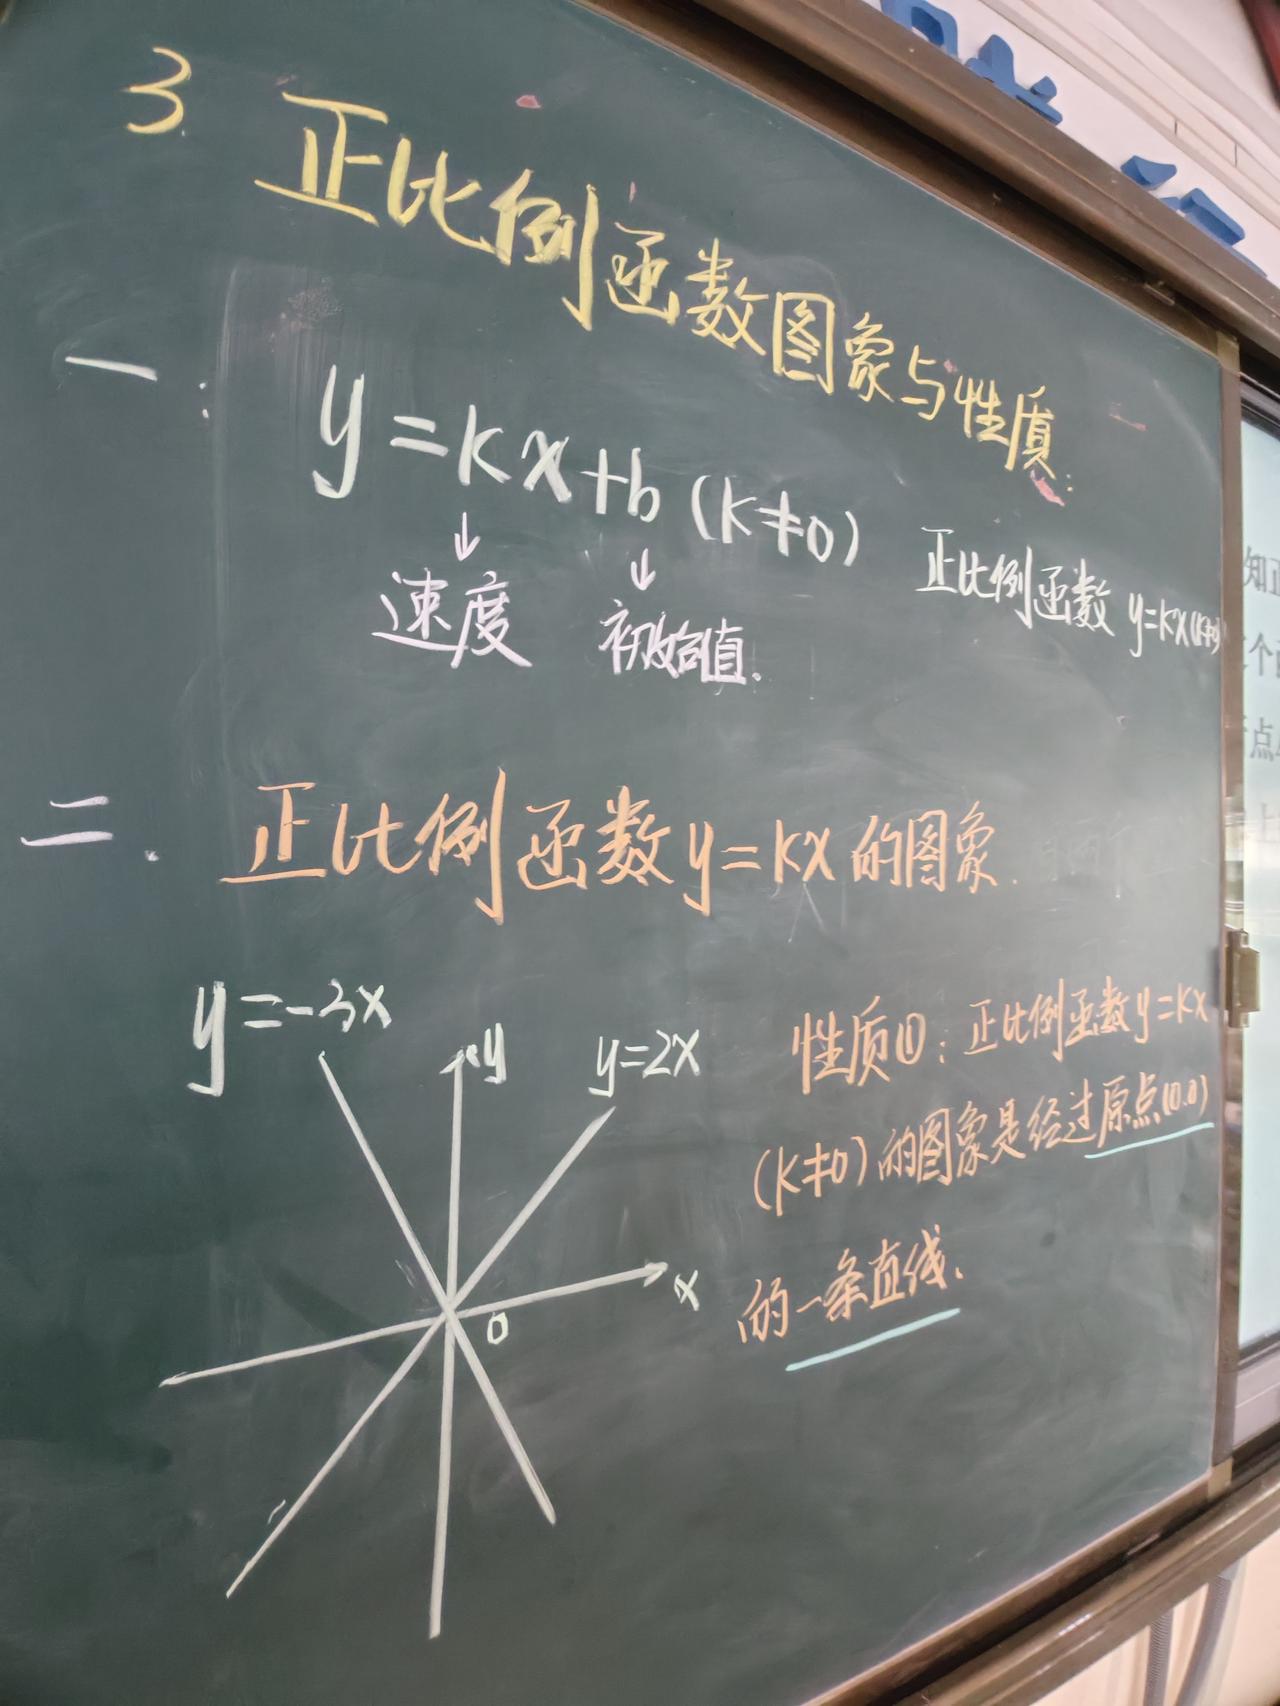 3 正比例函数图象与性质:
一. y=kx+b (k≠0)
↓ ↓
速度 初始值.
正比例函数 y=kx(k≠0)
二. 正比例函数y=kx的图象.
y=-3x
y
y=2x
x
0
性质①:正比例函数y=kx
(k≠0)的图象是经过原点(0.0)
的一条直线.
知正
个
点